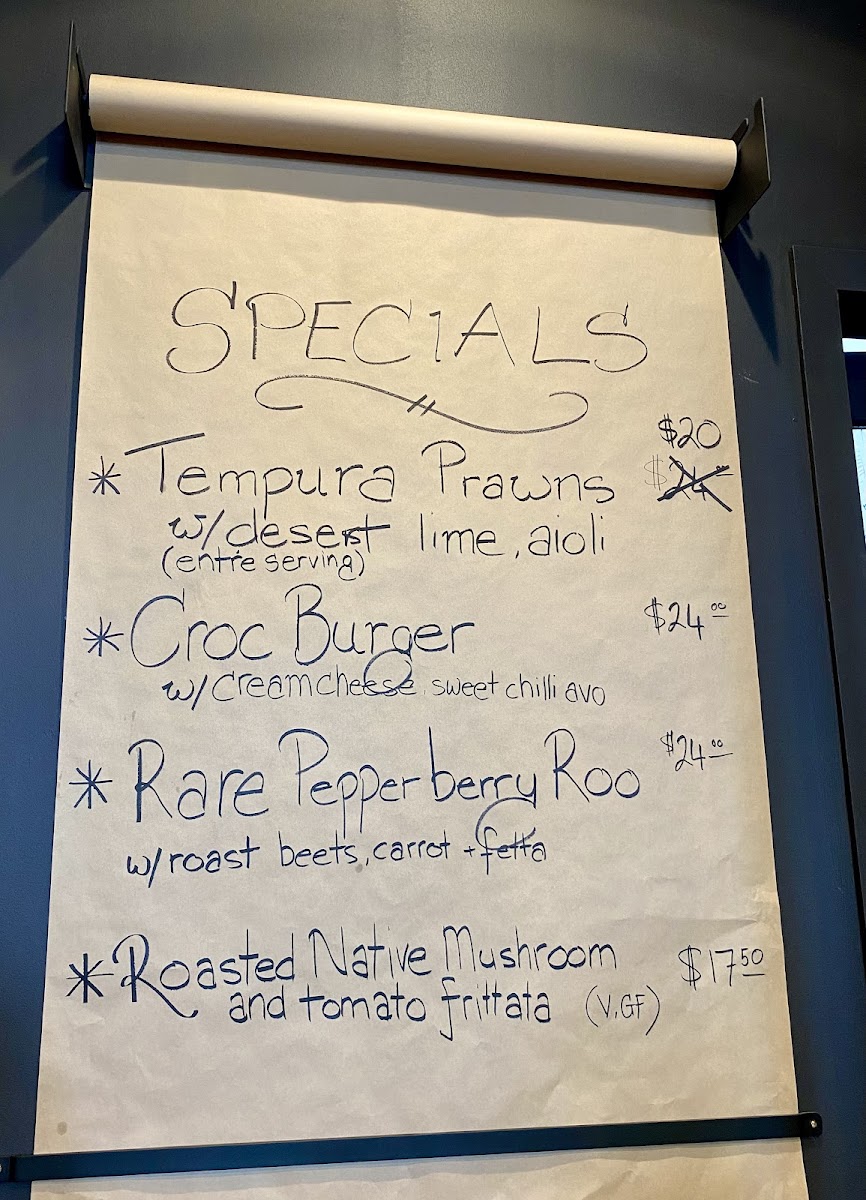 SPECIALS
* Tempura Prawns $20
$24
w/desert lime, aioli
(entrée serving)
* Croc Burger $24.00
w/creamcheese sweet chilli avo
* Rare Pepperberry Roo $24.00
w/roast beets, carrot + fetta
* Roasted Native Mushroom $17.50
and tomato frittata (V, GF)